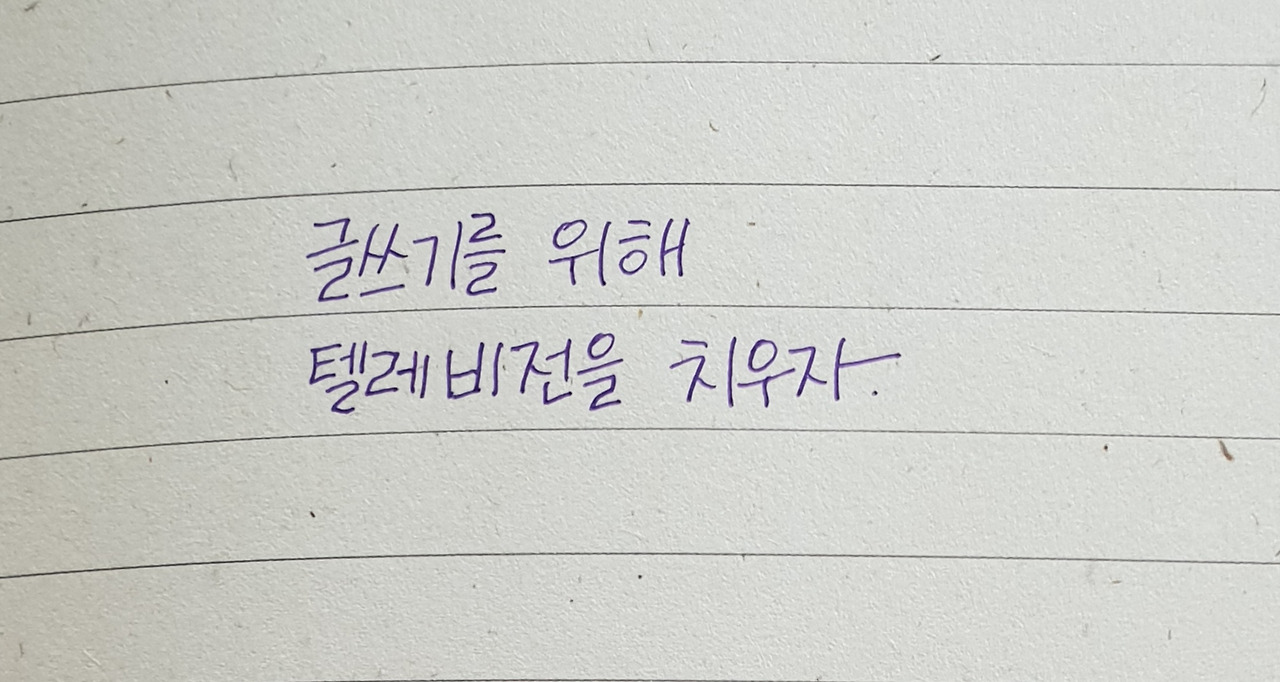 글쓰기를 위해
텔레비전을 치우자.